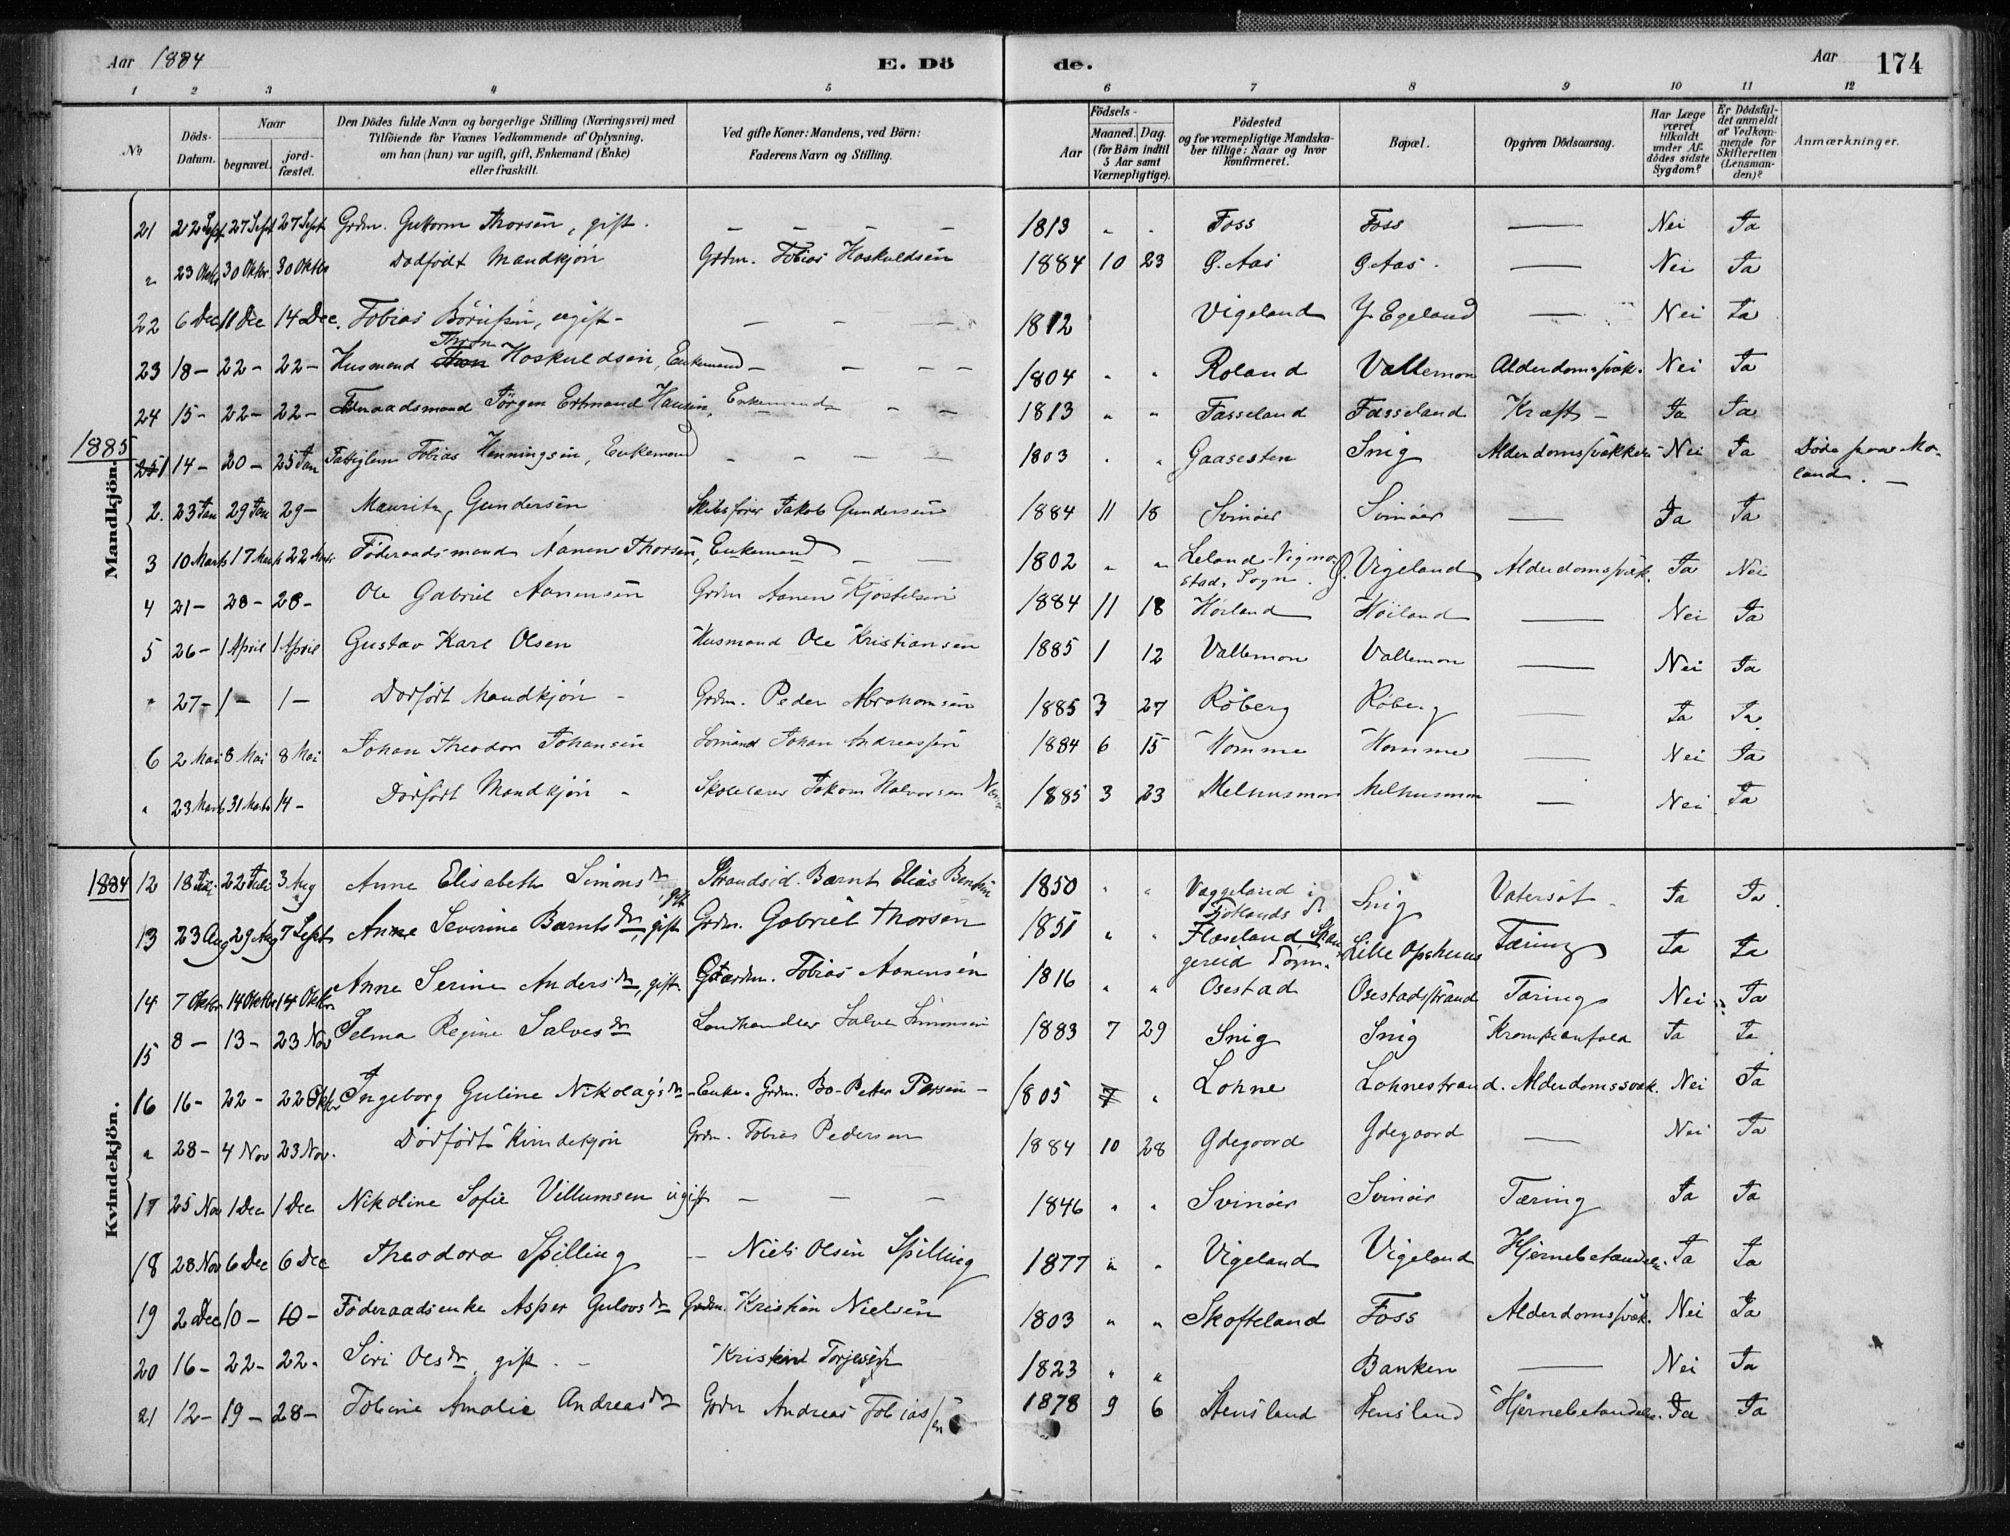 Aar 1884 E. Dö de. Aar 174
1 2 3 4 5 6 7 8 9 10 11 12
№ Döds-Datum. Naar begravet. jordfæstet. Den Dödes fulde Navn og borgerlige Stilling (Næringsvei) med Tilföiende for Voxnes Vedkommende af Oplysning, om han (hun) var ugift, gift, Enkemand (Enke) eller fraskilt. Ved gifte Koner: Mandens, ved Börn: Faderens Navn og Stilling. Födsels- Aar Maaned. Dag. (for Börn indtil 5 Aar samt Værnepligtige). Födested og for værnepligtige Mandskaber tillige: Naar og hvor Konfirmeret. Bopæl. Opgiven Dödsaarsag. Har Læge været tilkaldt under Afdödes sidste Sygdom? Er Dödsfaldet anmeldt af Vedkommende for Skifteretten (Lensmanden)? Anmærkninger.
Mandkjön.
21 22 Sept 27 Sept 27 Sept Grdm. Guttorm Thorsen, gift. — — — — 1813 " " Foss Foss — Nei Ja
" 23 Oktbr 30 Oktbr. 30 Oktbr Dødfødt Mandkjøn Grdm. Tobias Hoskuldsen 1884 10 23 G. Aas G. Aas. — Nei Ja
22 6 Dec 11 Dec 14 Dec. Tobias Börufsen, ugift — — — — 1812 Vigeland Y. Egeland — Nei Ja
23 18 – 22 – 22 – Husmand Thron Hoskuldsen, Enkemand — — — — 1804 " " Roland Vallemon Alderdomssvak. Nei Ja
24 15 – 22 – 22 – Føderaadsmand Jørgen Ertmand Hansen, Enkemand — — 1813 " " Fasseland Fasseland Kræft – Ja Ja
1885
1 14 – 20 – 25 Jan Fattiglem Tobias Henningsen, Enkemand — — — — 1803 " " Gaasesten Snig Alderdomssvakkelse Nei Ja Døde paa Moland. —
2. 23 Jan 29 Jan 29 – Mauritz Gundersen Skibsfører Jakob Gundersen 1884 11 18 Svinøer Svinøer — Ja Ja
3 10 Marts 17 Marts 22 Marts Föderaadsmand Aanen Thorsen, Enkemand — — 1802 " " Leland Vigmostad, Sogn. G. Vigeland Alderdomssvæk. Ja Nei
4 21 – 28 – 28 – Ole Gabriel Aanensen Grdm Aanen Kjøstelsen 1884 11 18 Høiland Høiland — Nei Ja
5 26 – 1 April 1 April Gustav Karl Olsen Husmand Ole Kristiansen 1885 1 12 Vallemon Vallemon — Nei Ja
" 27 – 1 – 1 – Dødfødt Mandkjøn – Grdm. Peder Abrahamsen 1885 3 27 Røberg Røberg — Ja Ja
6 2 Mai 8 Mai 8 Mai Johan Theodor Johansen Sømand Johan Andreassen 1884 6 15 Homme Homme — Nei Ja
" 23 Marts 31 Marts 14 – Dødfødt Mandkjøn – Skolelærer Jakom Halvorsen 1885 3 23 Melhusmon Melhusmon — Nei Ja
1884
Kvindekjön.
12 18 Juli 22 Juli 3 Aug Anne Elisabeth Simonsdr gift Strandsid. Bærnt Elias Bentsen 1850 " " Vaggeland i Fjotlands Snig Vatersot – Ja Ja
13 23 Aug 29 Aug 7 Sept Anne Severine Bærntsdr, gift Grdm. Gabriel Thorsen 1851 " " Flaseland Spangereid Sogn. Lille Opshuus Tæring Ja Ja
14 7 Oktbr 14 Oktbr 14 Oktbr Anne Serine Andersdr, gift. Gaardm. Tobias Aanensen 1816 " " Osestad Osestadstrand Tæring Nei Ja
15 8 – 13 – 23 Nov Selma Regine Salvesdr Landhandler Salve Simonsen 1883 7 29 Snig Snig Krampeanfald Ja Ja
16 16 – 22 – 22 Oktbr Ingeborg Guline Nikolaysdr – Enke. Grdm. Bo-Petter Persen – 1805 7 " Lohne Lohnestrand. Alderdomssvæk. Nei Ja
" 28 – 4 Nov 23 Nov. Dødfødt Kvindekjøn Grdm. Tobias Pedersen 1884 10 28 Ydegaard Ydegaard — Nei Ja
17 25 Nov 1 Dec 1 Dec Nikoline Sofie Villumsen ugift — — — 1846 " " Svinøer Svinøer Tæring Ja Ja
18 28 Nov 6 Dec 6 Dec Theodora Spilling – Niels Olsen Spilling 1877 " " Vigeland Vigeland Hjernebetændelse. Ja Ja
19 2 Dec 10 – 10 – Föderaadsenke Asper Gulovsdr Grdm. Kristian Nielsen 1803 " " Skofteland Foss Alderdomssvæk. Nei Ja
20 16 – 22 – 22 – Siri Olsdr, gift. – Kristen Torjesen 1823 " " Banken — Nei Ja
21 12 – 19 – 28 – Tobine Amalie Andreasdr Grdm Andreas Tobiassen 1878 9 6 Stensland Stensland Hjernebetændelse. Ja Ja